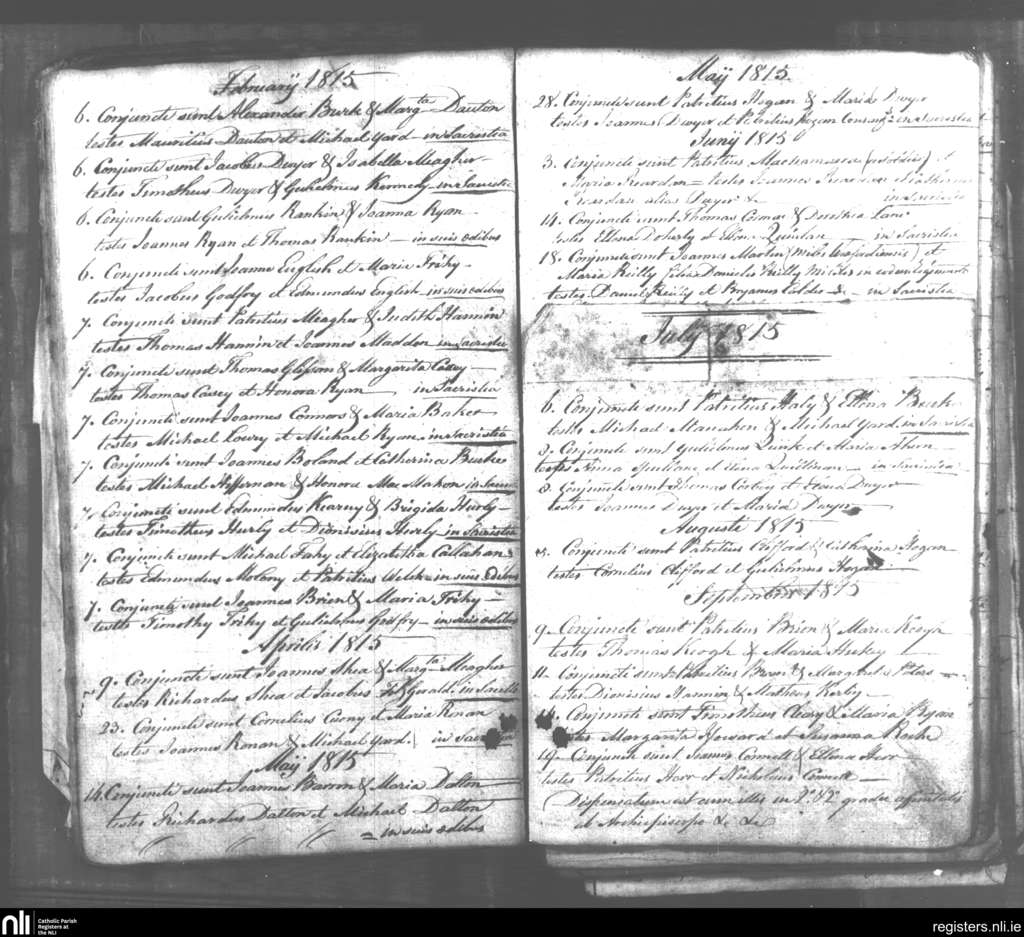 February 1815
6. Conjuncti sunt Alexander Burk & Margta Dauton
testes Mauritius Dauton et Michael Gard in Sacristia
6. Conjuncti sunt Jacobus Dwyer & Isabella Meagher
testes Timotheus Dwyer & Gulielmus Kennedy in Sacristia
6. Conjuncti sunt Gulielmus Rankin & Joanna Ryan
testes Joannes Ryan et Thomas Rankin — in suis ædibus
6. Conjuncti sunt Joannes English et Maria Trihy
testes Jacobus Godfry et Edmundus English in suis ædibus
7. Conjuncti sunt Patritius Meagher & Judith Hannin
testes Thomas Hannin et Joannes Madden in Sacristia
7. Conjuncti sunt Thomas Glissons & Margarita Casey
testes Thomas Casey et Honora Ryan in Sacristia
7. Conjuncti sunt Joannes Connors & Maria Baker
testes Michael Lowry et Michael Ryan in Sacristia
7. Conjuncti sunt Joannes Boland et Catherina Burke
testes Michael Heffernan & Honora MacMahon in
7. Conjuncti sunt Edmundus Kearny & Brigida Hurly
testes Timotheus Hurly et Dionisius Hurly in Sacristia
7. Conjuncti sunt Michael Fahy et Elizabetha Callahan
testes Edmundus Molony et Patritius Welsh in suis Ædibus
7. Conjuncti sunt Joannes Brien & Maria Trihy
testes Timothy Trihy et Gulielmus Godfry in suis ædibus
Aprilis 1815
9. Conjuncti sunt Joannes Shea & Margta Meagher
testes Richardus Shea et Jacobus FzGerald. in
23. Conjuncti sunt Cornelius et Maria Ronan
testes Joannes Ronan & Michael Gard. in
Maÿ 1815
14. Conjuncti sunt Joannes Barron & Maria Dalton
testes Richardus Dalton et Michael Dalton
= in suis ædibus
Maÿ 1815
28. Conjuncti sunt Patritius Hogan & Maria Dwyer
testes Joannes Dwyer et Patritius Hogan in Sacristia
Junÿ 1815
3. Conjuncti sunt Patritius et
Maria Reardan = testes Joannes Reardan
Reardan alias Dwyer & in Sacristia
14. Conjuncti sunt Thomas & Dorothea Lane
testes Ellena Doherty et Ellena Quinlan in Sacristia
18. Conjuncti sunt Joannes Martin (Miles) et
Maria Reilly filia Danielis Reilly Militis in
testes Daniel Reilly et Bryanus in Sacristia
July 1815
6. Conjuncti sunt Patritius Haly & Ellena Burk
testes Michael & Michael Gard in Sacristia
8. Conjuncti sunt Gulielmus et Maria
testes et in Sacristia
8. Conjuncti sunt Thomas et Dwyer
testes Joannes Dwyer et Maria Dwyer
Augusti 1815
Conjuncti sunt Patritius Clifford & Catharina Hogan
testes Cornelius Clifford et Gulielmus Hogan
Septembris 1815
9 Conjuncti sunt Patritius Brien & Maria Keogh
testes Thomas Keogh & Maria Hickey
11. Conjuncti sunt Patritius & Margarita Peters
testes Dionisius Hannin & Matheus Kerby
14. Conjuncti sunt Timotheus Cleary & Maria Ryan
testes Margarita Howard et Susanna Roche
19. Conjuncti sunt Jeames Connell & Ellena Herr
testes Patritius Herr et Nicholaus Connell
Dispensatum est cum illis in 2º & 2º gradu
ab Archiepiscopo &c &c
nli
Catholic Parish
Registers at
the NLI
registers.nli.ie